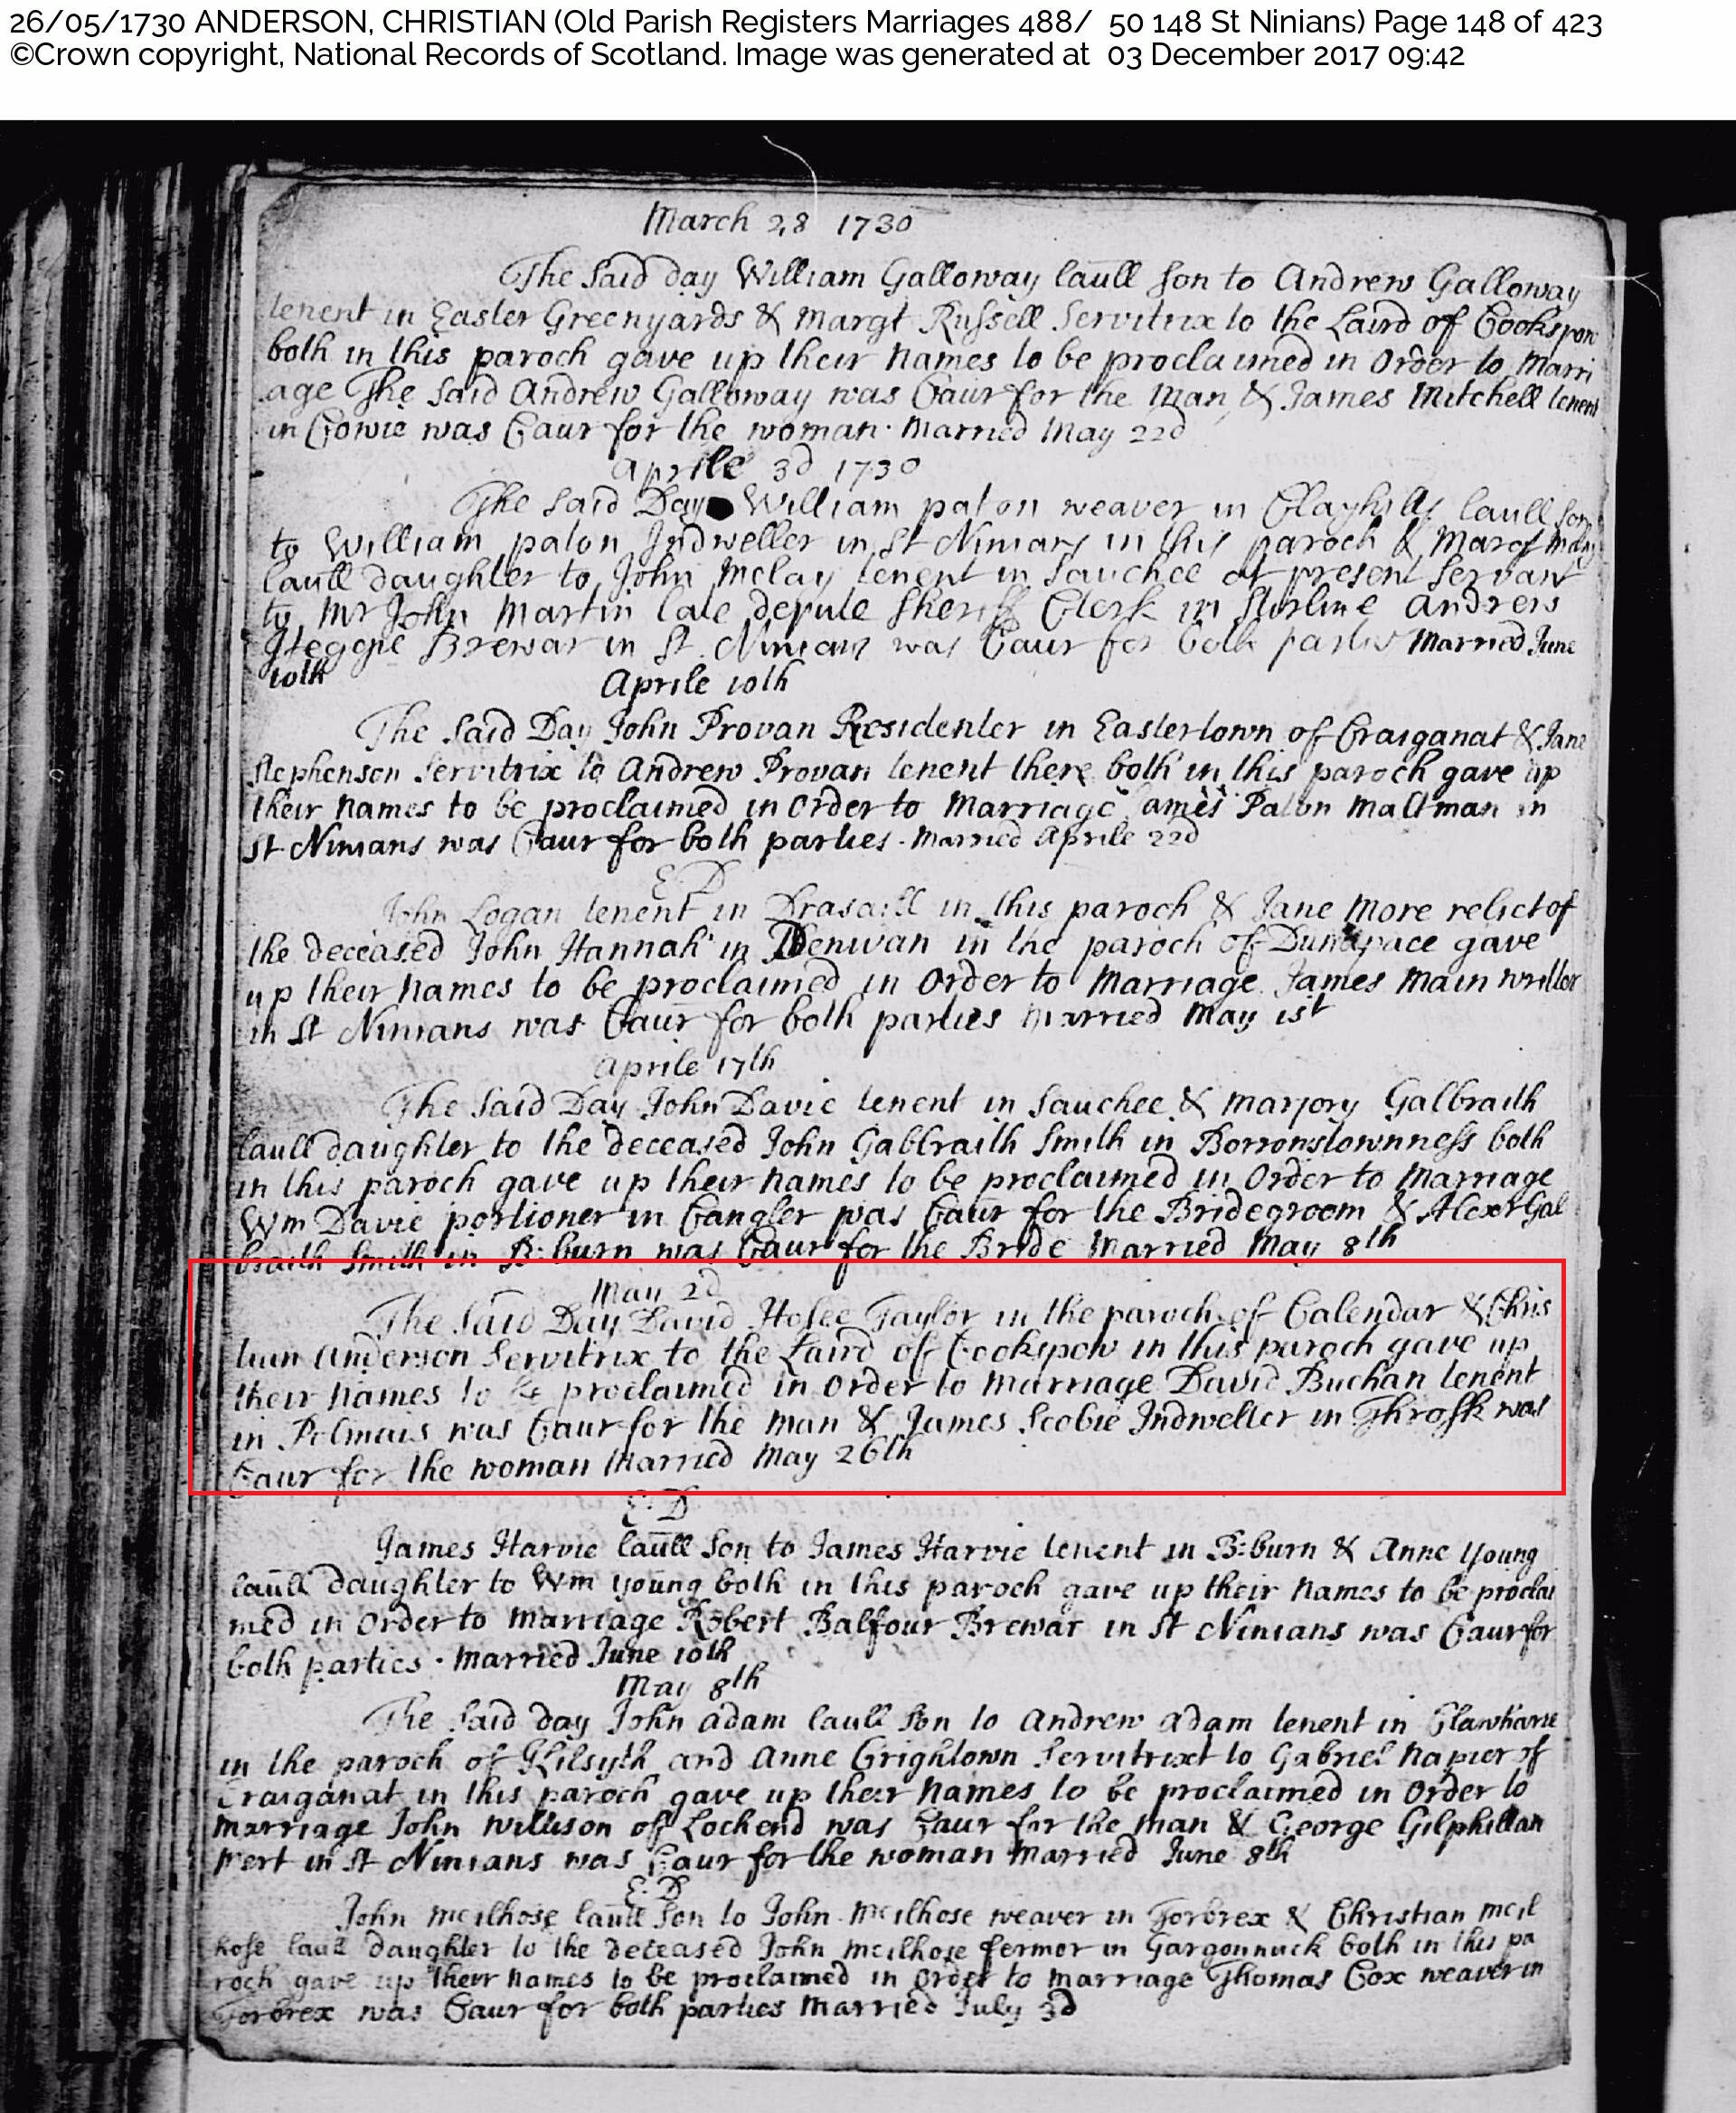 26/05/1730 ANDERSON, CHRISTIAN (Old Parish Registers Marriages 488/ 50 148 St Ninians) Page 148 of 423
©Crown copyright, National Records of Scotland. Image was generated at 03 December 2017 09:42
March 28 1730
The said day William Galloway laull son to Andrew Galloway
tenent in Easter Greenyards & Margt Russell Servitrix to the Laird of Cookspow
both in this paroch gave up their names to be proclaimed in Order to Marri
age The said Andrew Galloway was Caur for the Man & James Mitchell tenent
in Cowie was Caur for the woman. Married May 22d
Aprile 3d 1730
The said Day William paton weaver in Clayhills laull son
to William paton Indweller in St Ninians in this paroch & Margt
laull daughter to John Mclay tenent in Sauchee at present Servant
to Mr John Martin late depute Sheriff Clerk in Stirline Andrew
Brewar in St. Ninians was Caur for both parties Married June
10th
Aprile 10th
The Said Day John Provan Residenter in Eastertown of Craiganat & Jane
Stephenson Servitrix to Andrew Provan tenent there both in this paroch gave up
their names to be proclaimed in Order to Marriage James Paton Maltman in
St Ninians was Caur for both parties. Married Aprile 22d
E: D
John Logan tenent in in this paroch & Jane More relict of
the deceased John Hannah in Denwan in the paroch of Dunipace gave
up their names to be proclaimed in Order to Marriage James Main writter
in St Ninians was Caur for both parties Married May 1st
Aprile 17th
The Said Day John Davie tenent in Sauchee & Marjory Galbraith
laull daughter to the deceased John Gabbraith Smith in Borronstownness both
in this paroch gave up their names to be proclaimed in Order to Marriage
Wm Davie portioner in Cangler was Caur for the Bridegroom & Alexr Gal
braith Smith in B:burn was Caur for the Bride Married May 8th
May 2d
The Said Day David Hosee Taylor in the paroch of Calendar & Chris
tian Anderson Servitrix to the Laird of Cookspow in this paroch gave up
their names to be proclaimed in Order to Marriage David Buchan tenent
in Polmais was Caur for the Man & James Scobie Indweller in Throsk was
Caur for the woman Married May 26th
E: D
James Harvie laull Son to James Harvie tenent in B:burn & Anne Young
laull daughter to Wm Young both in this paroch gave up their names to be proclai
med in Order to Marriage Robert Balfour Brewar in St Ninians was Caur for
both parties. Married June 10th
May 8th
The Said day John Adam laull Son to Andrew Adam tenent in
in the paroch of Kilsyth and Anne Crightown Servitrixt to Gabriel Napier of
Craiganat in this paroch gave up their names to be proclaimed in Order to
Marriage John Willison of Lochend was Caur for the man & George Gilphillan
Mert in St Ninians was Caur for the woman Married June 8th
E: D
John Mcilhose laull Son to John Mcilhose weaver in Torbrex & Christian Mcil
hose laull daughter to the deceased John Mcilhose fermor in Gargonnuck both in this pa
roch gave up their names to be proclaimed in Order to Marriage Thomas Cox weaver in
Torbrex was Caur for both parties Married July 3d